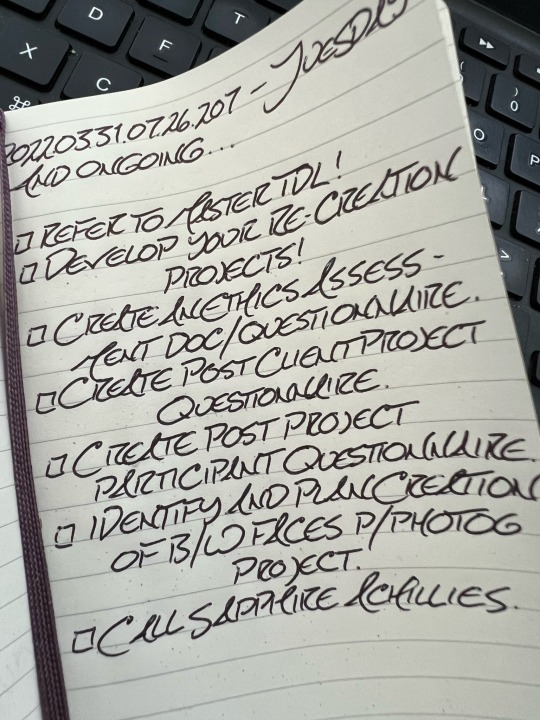 20220331.07.26.207 - TUESDAY
AND ONGOING...
☐ REFER TO MASTER TDL!
☐ DEVELOP YOUR RE-CREATION
PROJECTS!
☐ CREATE AN ETHICS ASSESS-
MENT DOC/QUESTIONNAIRE.
☐ CREATE POST CLIENT PROJECT
QUESTIONNAIRE.
☐ CREATE POST PROJECT
PARTICIPANT QUESTIONNAIRE.
☐ IDENTIFY AND PLAN CREATION
OF B/W FACES P/PHOTOG
PROJECT.
☐ CALL SAPPHIRE ACHILLIES.
D
F
T
X
C
⌘
O
P
L